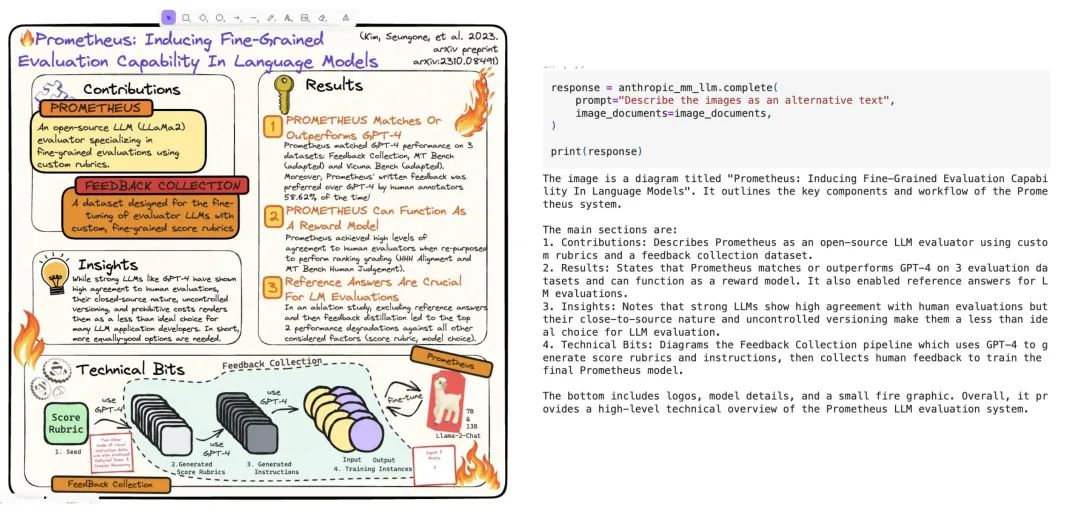 Prometheus: Inducing Fine-Grained
Evaluation Capability In Language Models
(Kim, Seungone, et al. 2023.
arXiv preprint
arXiv:2310.08491)
Contributions
PROMETHEUS
An open-source LLM (LLaMa2)
evaluator specializing in
fine-grained evaluations using
custom rubrics.
FEEDBACK COLLECTION
A dataset designed for the fine-
tuning of evaluator LLMs with
custom, fine-grained score rubrics
Insights
While strong LLMs like GPT-4 have shown
high agreement to human evaluations,
their closed-source nature, uncontrolled
versioning, and prohibitive costs renders
them as a less than ideal choice for
many LLM application developers. In short,
more equally-good options are needed.
Results
1
PROMETHEUS Matches Or
Outperforms GPT-4
Prometheus matched GPT-4 performance on 3
datasets: Feedback Collection, MT Bench
(adapted) and Vicuna Bench (adapted).
Moreover, Prometheus' written feedback was
preferred over GPT-4 by human annotators
58.62% of the time!
2
PROMETHEUS Can Function As
A Reward Model
Prometheus achieved high levels of
agreement to human evaluators when re-purposed
to perform ranking grading (HHH Alignment and
MT Bench Human Judgement).
3
Reference Answers Are Crucial
For LM Evaluations
In an ablation study, excluding reference answers
and then feedback distillation led to the top
2 performance degradations against all other
considered factors (score rubric, model choice).
Technical Bits
Feedback Collection
Prometheus
Score
Rubric
1. Seed
use
GPT-4
2.Generated
Score Rubrics
use
GPT-4
3. Generated
Instructions
use
GPT-4
Input Output
4. Training Instances
fine-tune
7B
&
13B
Llama-2-Chat
FeedBack Collection
response = anthropic_mm_llm.complete(
prompt="Describe the images as an alternative text",
image_documents=image_documents,
)
print(response)
The image is a diagram titled "Prometheus: Inducing Fine-Grained Evaluation Capabi
lity In Language Models". It outlines the key components and workflow of the Prome
theus system.
The main sections are:
1. Contributions: Describes Prometheus as an open-source LLM evaluator using custo
m rubrics and a feedback collection dataset.
2. Results: States that Prometheus matches or outperforms GPT-4 on 3 evaluation da
tasets and can function as a reward model. It also enabled reference answers for L
M evaluations.
3. Insights: Notes that strong LLMs show high agreement with human evaluations but
their close-to-source nature and uncontrolled versioning make them a less than ide
al choice for LLM evaluation.
4. Technical Bits: Diagrams the Feedback Collection pipeline which uses GPT-4 to g
enerate score rubrics and instructions, then collects human feedback to train the
final Prometheus model.
The bottom includes logos, model details, and a small fire graphic. Overall, it pr
ovides a high-level technical overview of the Prometheus LLM evaluation system.